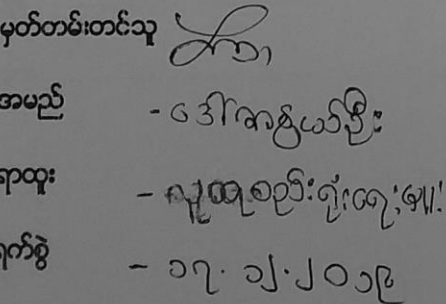 မှတ်တမ်းတင်သူ
အမည် - ဒေါ်
ရာထူး - လူထုစည်းရုံးရေးမှူး
ရက်စွဲ - ၁၇.၁၂.၂၀၁၉